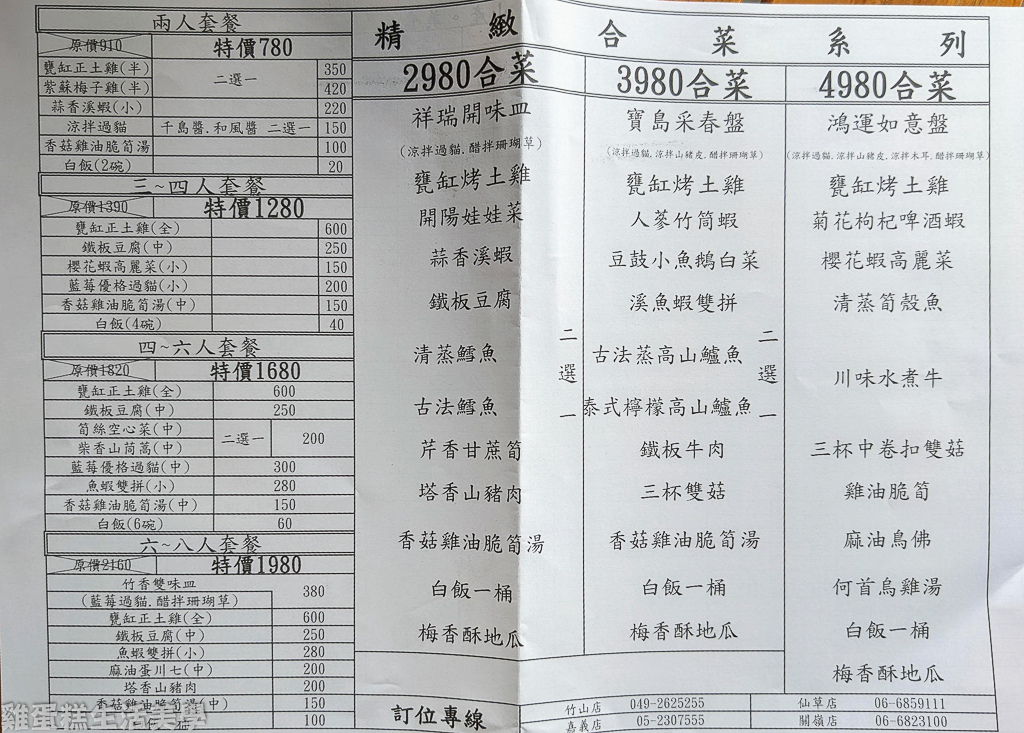 兩人套餐
原價910 特價780
甕缸正土雞(半) 二選一 350
紫蘇梅子雞(半) 420
蒜香溪蝦(小) 220
涼拌過貓 千島醬.和風醬 二選一 150
香菇雞油脆筍湯 100
白飯(2碗) 20
三~四人套餐
原價1390 特價1280
甕缸正土雞(全) 600
鐵板豆腐(中) 250
櫻花蝦高麗菜(小) 150
藍莓優格過貓(小) 200
香菇雞油脆筍湯(中) 150
白飯(4碗) 40
四~六人套餐
原價1820 特價1680
甕缸正土雞(全) 600
鐵板豆腐(中) 250
筍絲空心菜(中) 二選一 200
柴香山茼蒿(中)
藍莓優格過貓(中) 300
魚蝦雙拼(小) 280
香菇雞油脆筍湯(中) 150
白飯(6碗) 60
六~八人套餐
原價2160 特價1980
竹香雙味皿 380
(藍莓過貓.醋拌珊瑚草)
甕缸正土雞(全) 600
鐵板豆腐(中) 250
魚蝦雙拼(小) 280
麻油蛋川七(中) 200
塔香山豬肉 200
香菇雞油脆筍湯(中) 150
100
精緻合菜系列
2980合菜
祥瑞開味皿
(涼拌過貓.醋拌珊瑚草)
甕缸烤土雞
開陽娃娃菜
蒜香溪蝦
鐵板豆腐
清蒸鱈魚
二選一
古法鱈魚
芹香甘蔗筍
塔香山豬肉
香菇雞油脆筍湯
白飯一桶
梅香酥地瓜
3980合菜
寶島采春盤
(涼拌過貓.涼拌山豬皮.醋拌珊瑚草)
甕缸烤土雞
人蔘竹筒蝦
豆鼓小魚鵝白菜
溪魚蝦雙拼
古法蒸高山鱸魚
二選一
泰式檸檬高山鱸魚
鐵板牛肉
三杯雙菇
香菇雞油脆筍湯
白飯一桶
梅香酥地瓜
4980合菜
鴻運如意盤
(涼拌過貓.涼拌山豬皮.涼拌木耳.醋拌珊瑚草)
甕缸烤土雞
菊花枸杞啤酒蝦
櫻花蝦高麗菜
清蒸筍殼魚
川味水煮牛
三杯中卷扣雙菇
雞油脆筍
麻油鳥佛
何首烏雞湯
白飯一桶
梅香酥地瓜
訂位專線
竹山店 049-2625255 仙草店 06-6859111
嘉義店 05-2307555 關嶺店 06-6823100
雞蛋糕生活美學